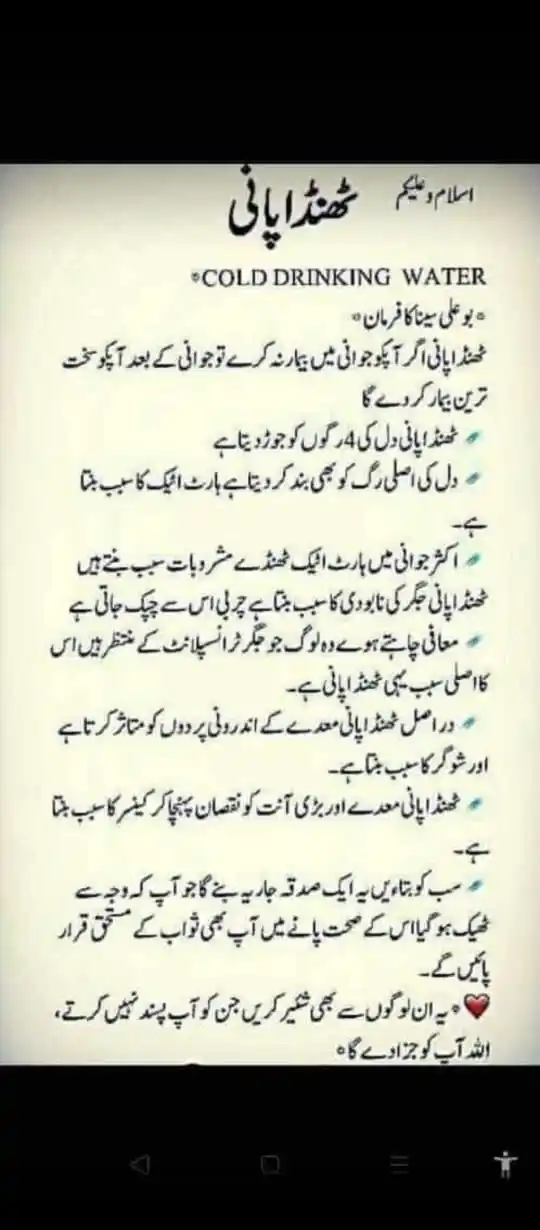 اسلام وعلیکم
ٹھنڈا پانی
*COLD DRINKING WATER
*بو علی سینا کا فرمان*
ٹھنڈا پانی اگر آپکو جوانی میں بیمار نہ کرے تو جوانی کے بعد آپکو سخت
ترین بیمار کر دے گا
ٹھنڈا پانی دل کی 4 رگوں کو جوڑ دیتا ہے
دل کی اصلی رگ کو بھی بند کر دیتا ہے ہارٹ اٹیک کا سبب بنتا
ہے۔
اکثر جوانی میں ہارٹ اٹیک ٹھنڈے مشروبات سبب بنتے ہیں
ٹھنڈا پانی جگر کی نابودی کا سبب بنتا ہے چربی اس سے چپک جاتی ہے
معافی چاہتے ہوے وہ لوگ جو جگر ٹرانسپلانٹ کے منتظر ہیں اس
کا اصلی سبب یہی ٹھنڈا پانی ہے۔
در اصل ٹھنڈا پانی معدے کے اندرونی پردوں کو متاثر کرتا ہے
اور شوگر کا سبب بنتا ہے۔
ٹھنڈا پانی معدے اور بڑی آنت کو نقصان پہنچا کر کینسر کا سبب بنتا
ہے۔
سب کو بتاءیں یہ ایک صدقہ جاریہ بنے گا جو آپ کہ وجہ سے
ٹھیک ہو گیا اس کے صحت پانے میں آپ بھی ثواب کے مستحق قرار
پائیں گے۔
❤️ *یہ ان لوگوں سے بھی شئیر کریں جن کو آپ پسند نہیں کرتے،
اللہ آپ کو جزا دے گا*